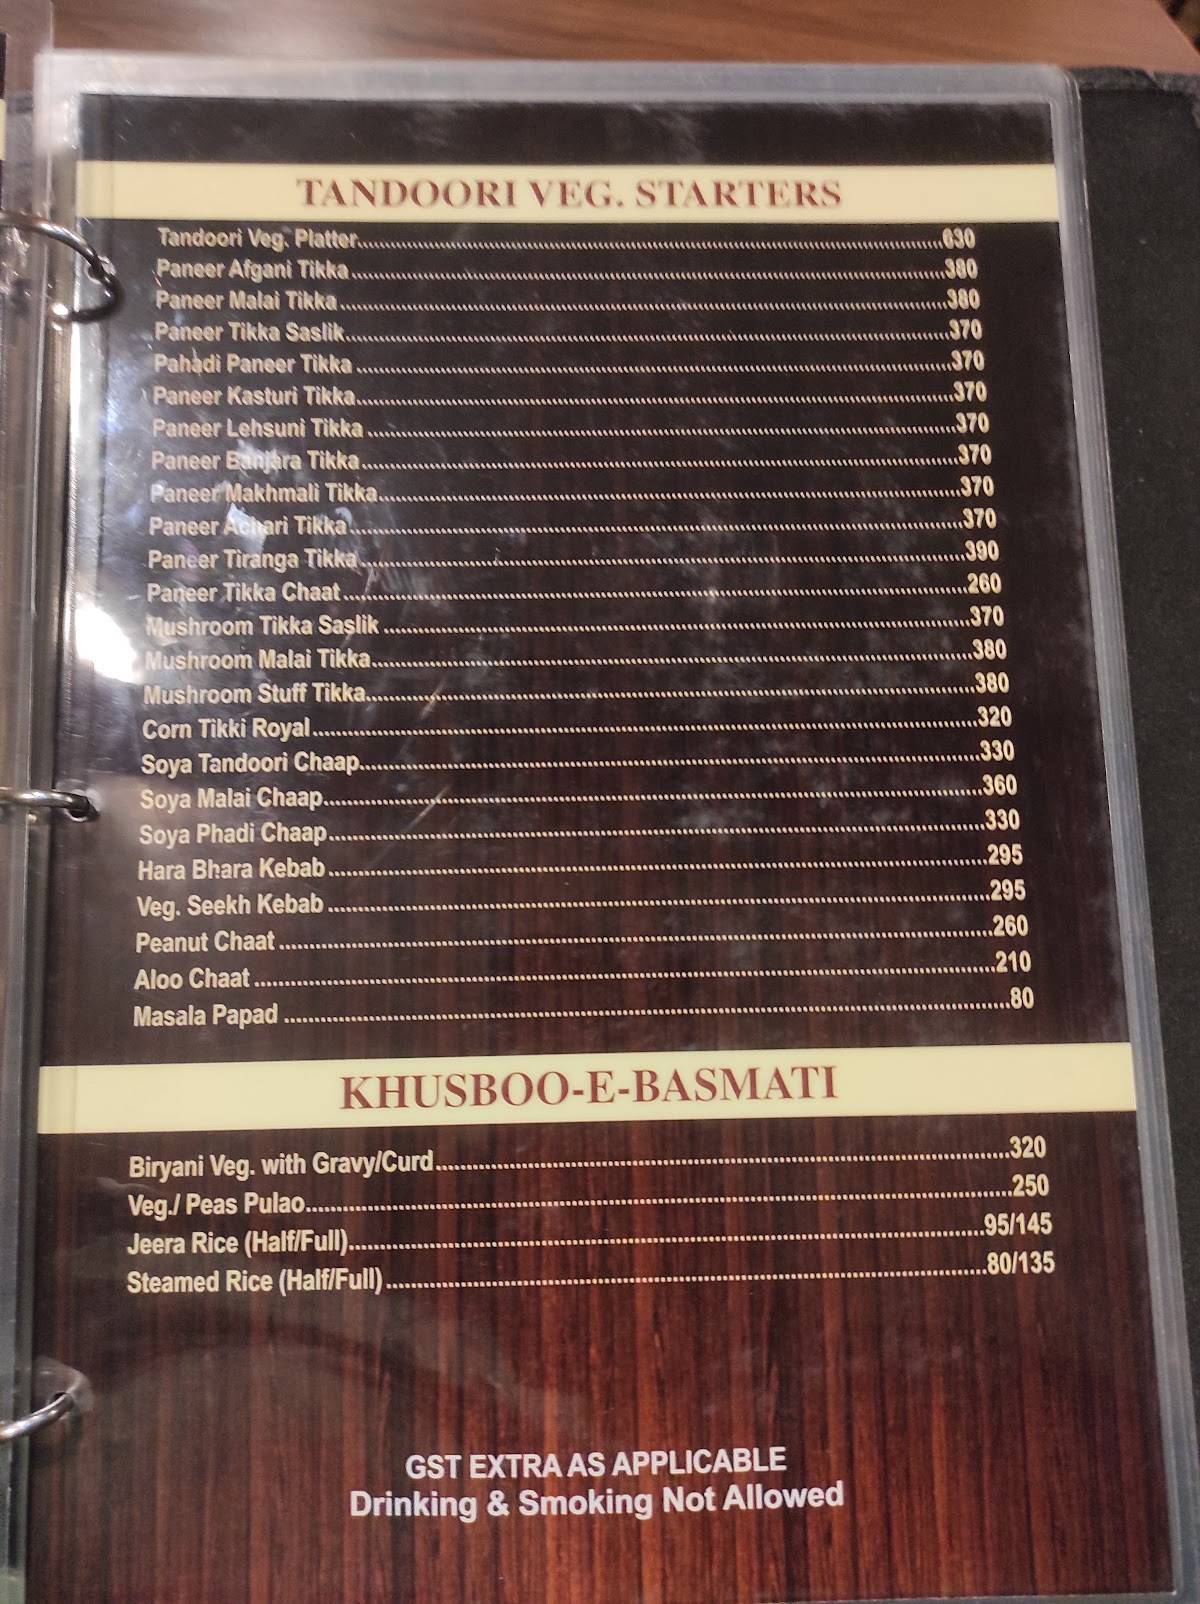 TANDOORI VEG. STARTERS
Tandoori Veg. Platter 630
Paneer Afgani Tikka 380
Paneer Malai Tikka 380
Paneer Tikka Saslik 370
Pahadi Paneer Tikka 370
Paneer Kasturi Tikka 370
Paneer Lehsuni Tikka 370
Paneer Banjara Tikka 370
Paneer Makhmali Tikka 370
Paneer Achari Tikka 370
Paneer Tiranga Tikka 390
Paneer Tikka Chaat 260
Mushroom Tikka Saslik 370
Mushroom Malai Tikka 380
Mushroom Stuff Tikka 380
Corn Tikki Royal 320
Soya Tandoori Chaap 330
Soya Malai Chaap 360
Soya Phadi Chaap 330
Hara Bhara Kebab 295
Veg. Seekh Kebab 295
Peanut Chaat 260
Aloo Chaat 210
Masala Papad 80
KHUSBOO-E-BASMATI
Biryani Veg. with Gravy/Curd 320
Veg./ Peas Pulao 250
Jeera Rice (Half/Full) 95/145
Steamed Rice (Half/Full) 80/135
GST EXTRA AS APPLICABLE
Drinking & Smoking Not Allowed